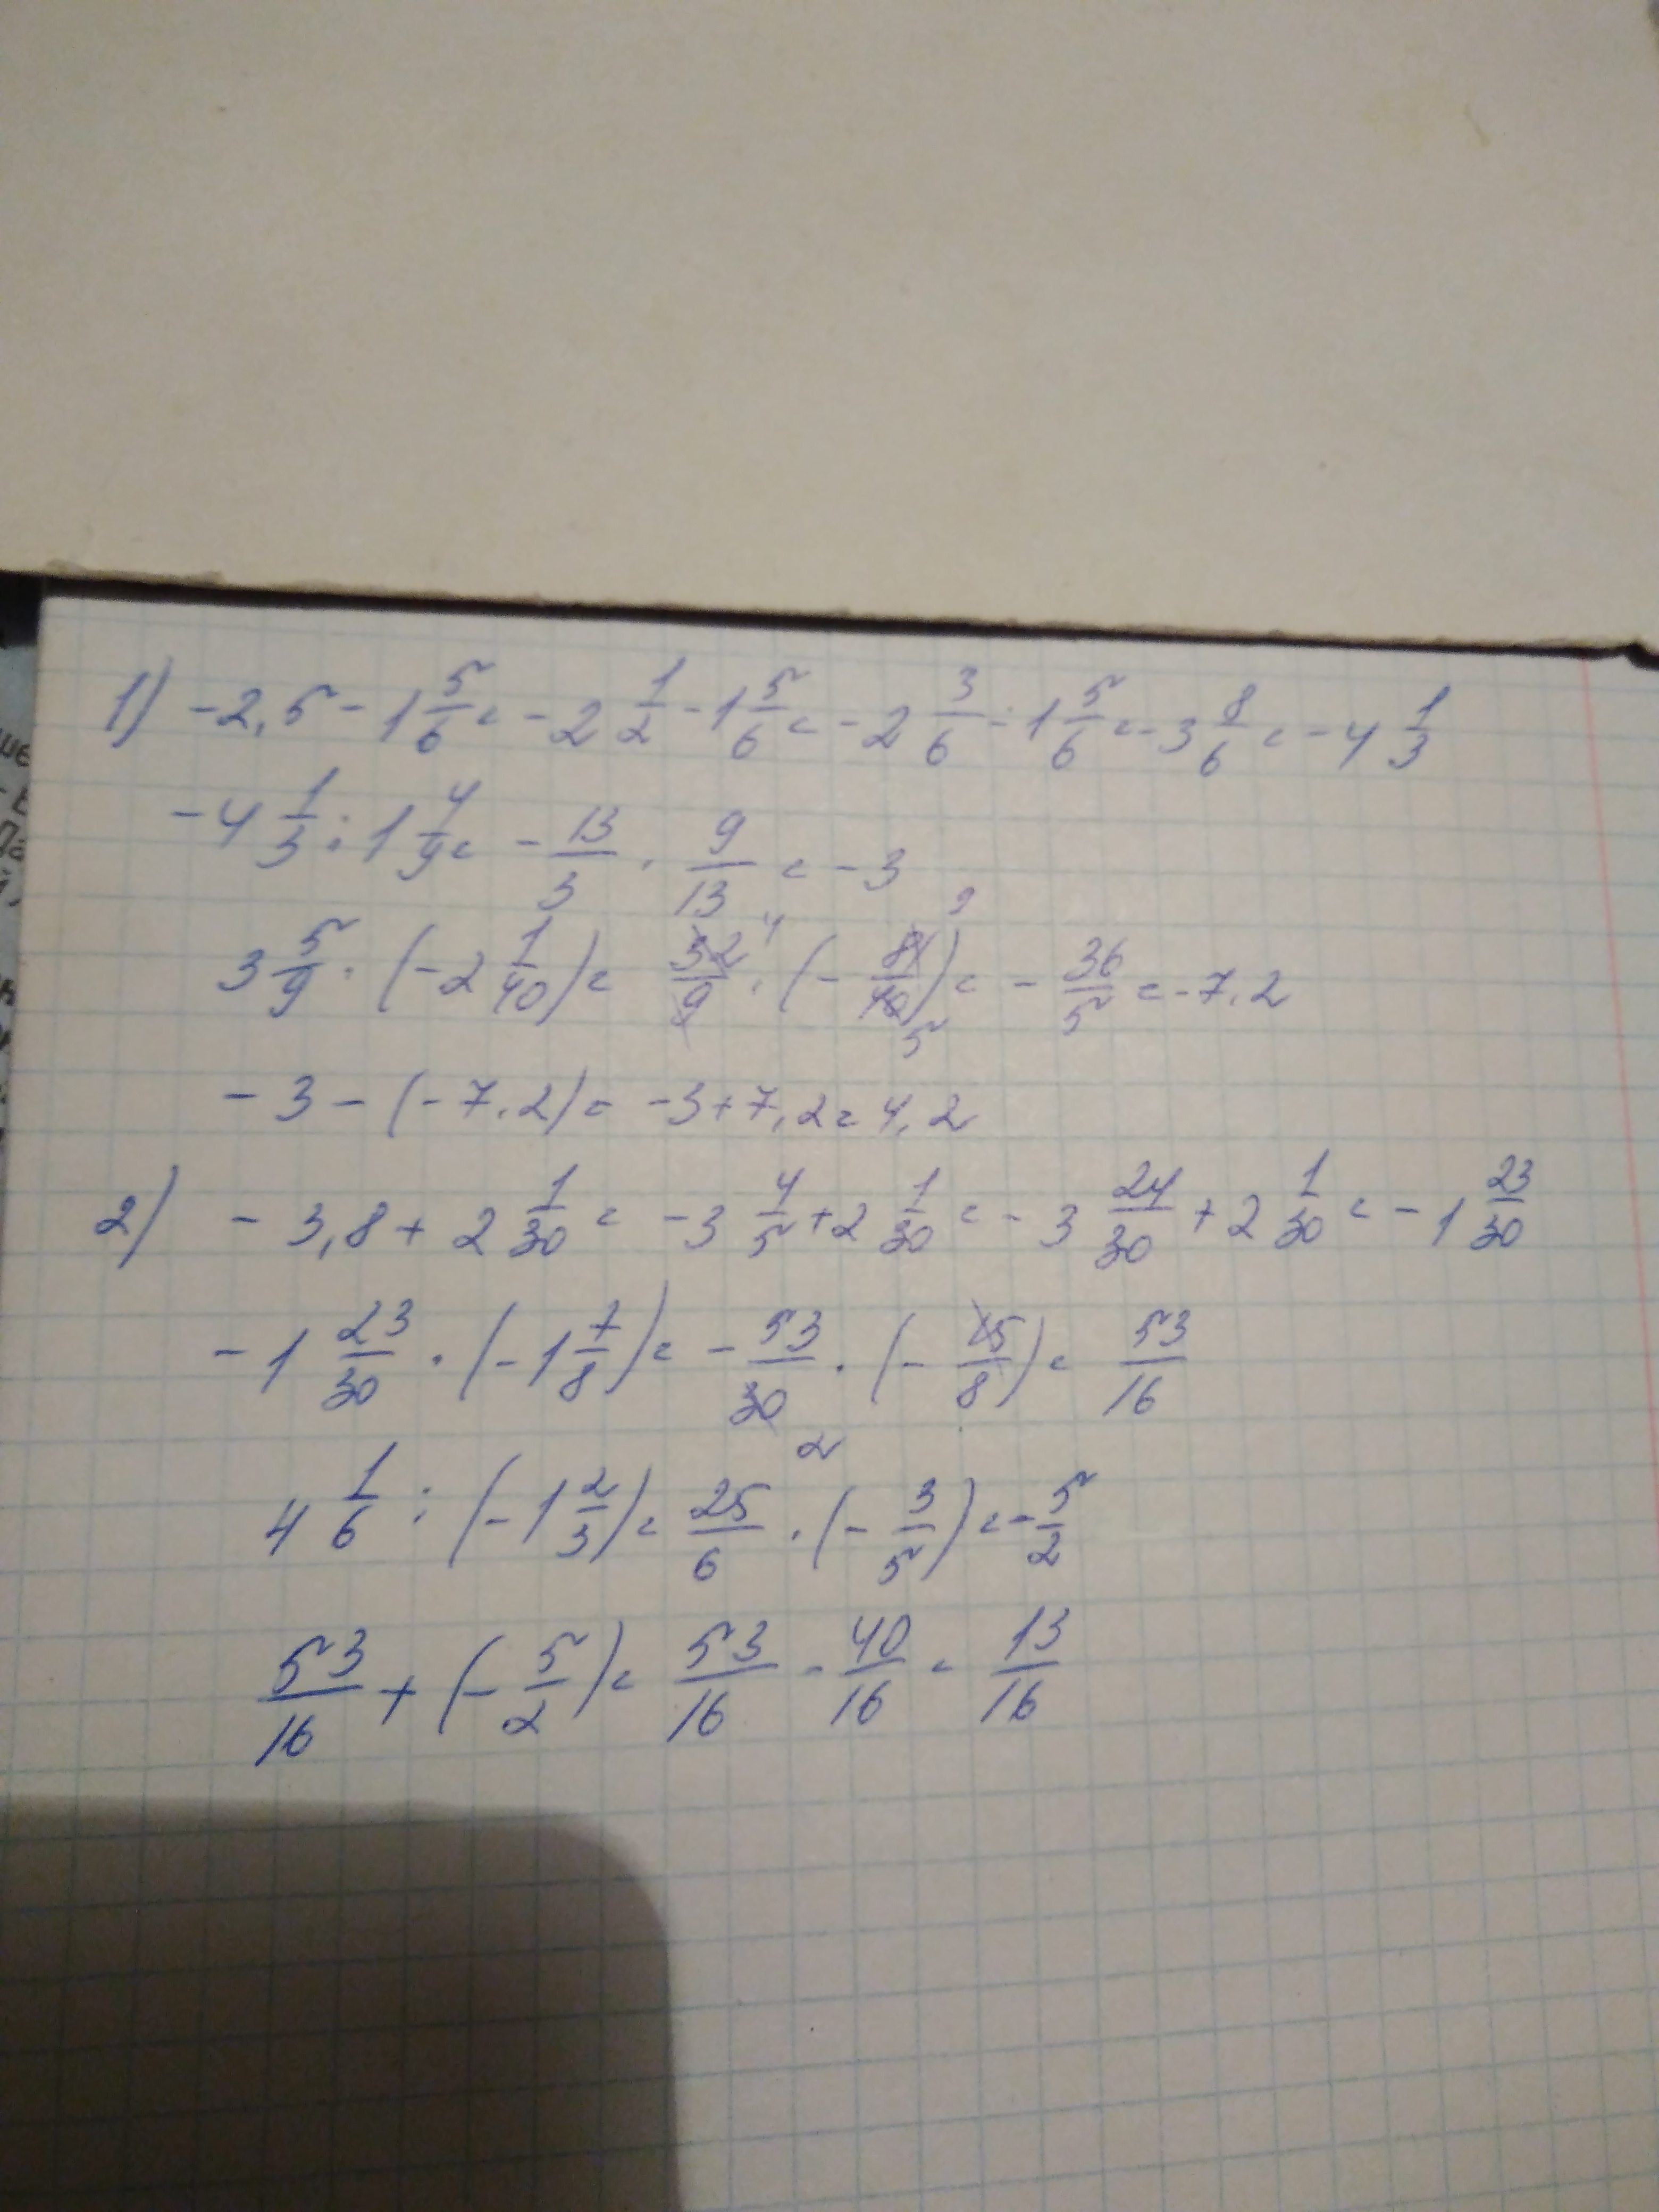 1) -2,5 - 1 5/6 = -2 1/2 - 1 5/6 = -2 3/6 - 1 5/6 = -3 8/6 = -4 1/3
-4 1/3 : 1 4/9 = - 13/3 · 9/13 = -3
3 5/9 · (-2 1/40) = 32/9 4 · (- 81/40) 9 5 = - 36/5 = -7,2
-3 - (-7,2) = -3 + 7,2 = 4,2
2) -3,8 + 2 1/30 = -3 4/5 + 2 1/30 = -3 24/30 + 2 1/30 = -1 23/30
-1 23/30 · (-1 7/8) = - 53/30 2 · (- 15/8) = 53/16
4 1/6 : (-1 2/3) = 25/6 · (- 3/5) = - 5/2
53/16 + (- 5/2) = 53/16 - 40/16 = 13/16